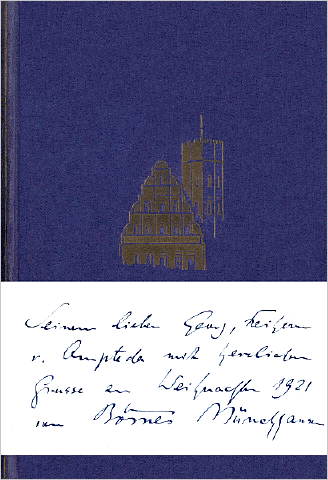 Seinem lieben Georg, Freiherrn
v. Ompteda mit herzlichem
Grusse an Weihnachten 1921
von Börries Münchhausen